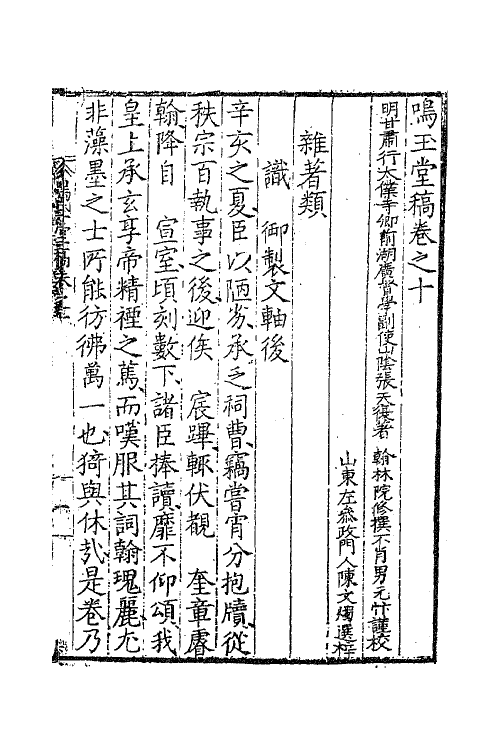 鳴玉堂稿卷之十
明甘肅行太僕寺卿前湖廣督學副使山陰張天復著 翰林院修撰不肖男元忭謹校
山東左參政門人陳文燭選梓
雜著類
識 御製文軸後
辛亥之夏臣以陋劣承乏祠曹竊嘗宵分抱牘從
秩宗百執事之後迎俟 宸蹕輒伏覩 奎章睿
翰降自 宣室頃刻數下諸臣捧讀靡不仰頌我
皇上承玄享帝精禋之篤而嘆服其詞翰瑰麗尤
非藻墨之士所能彷彿萬一也猗與休哉是卷乃